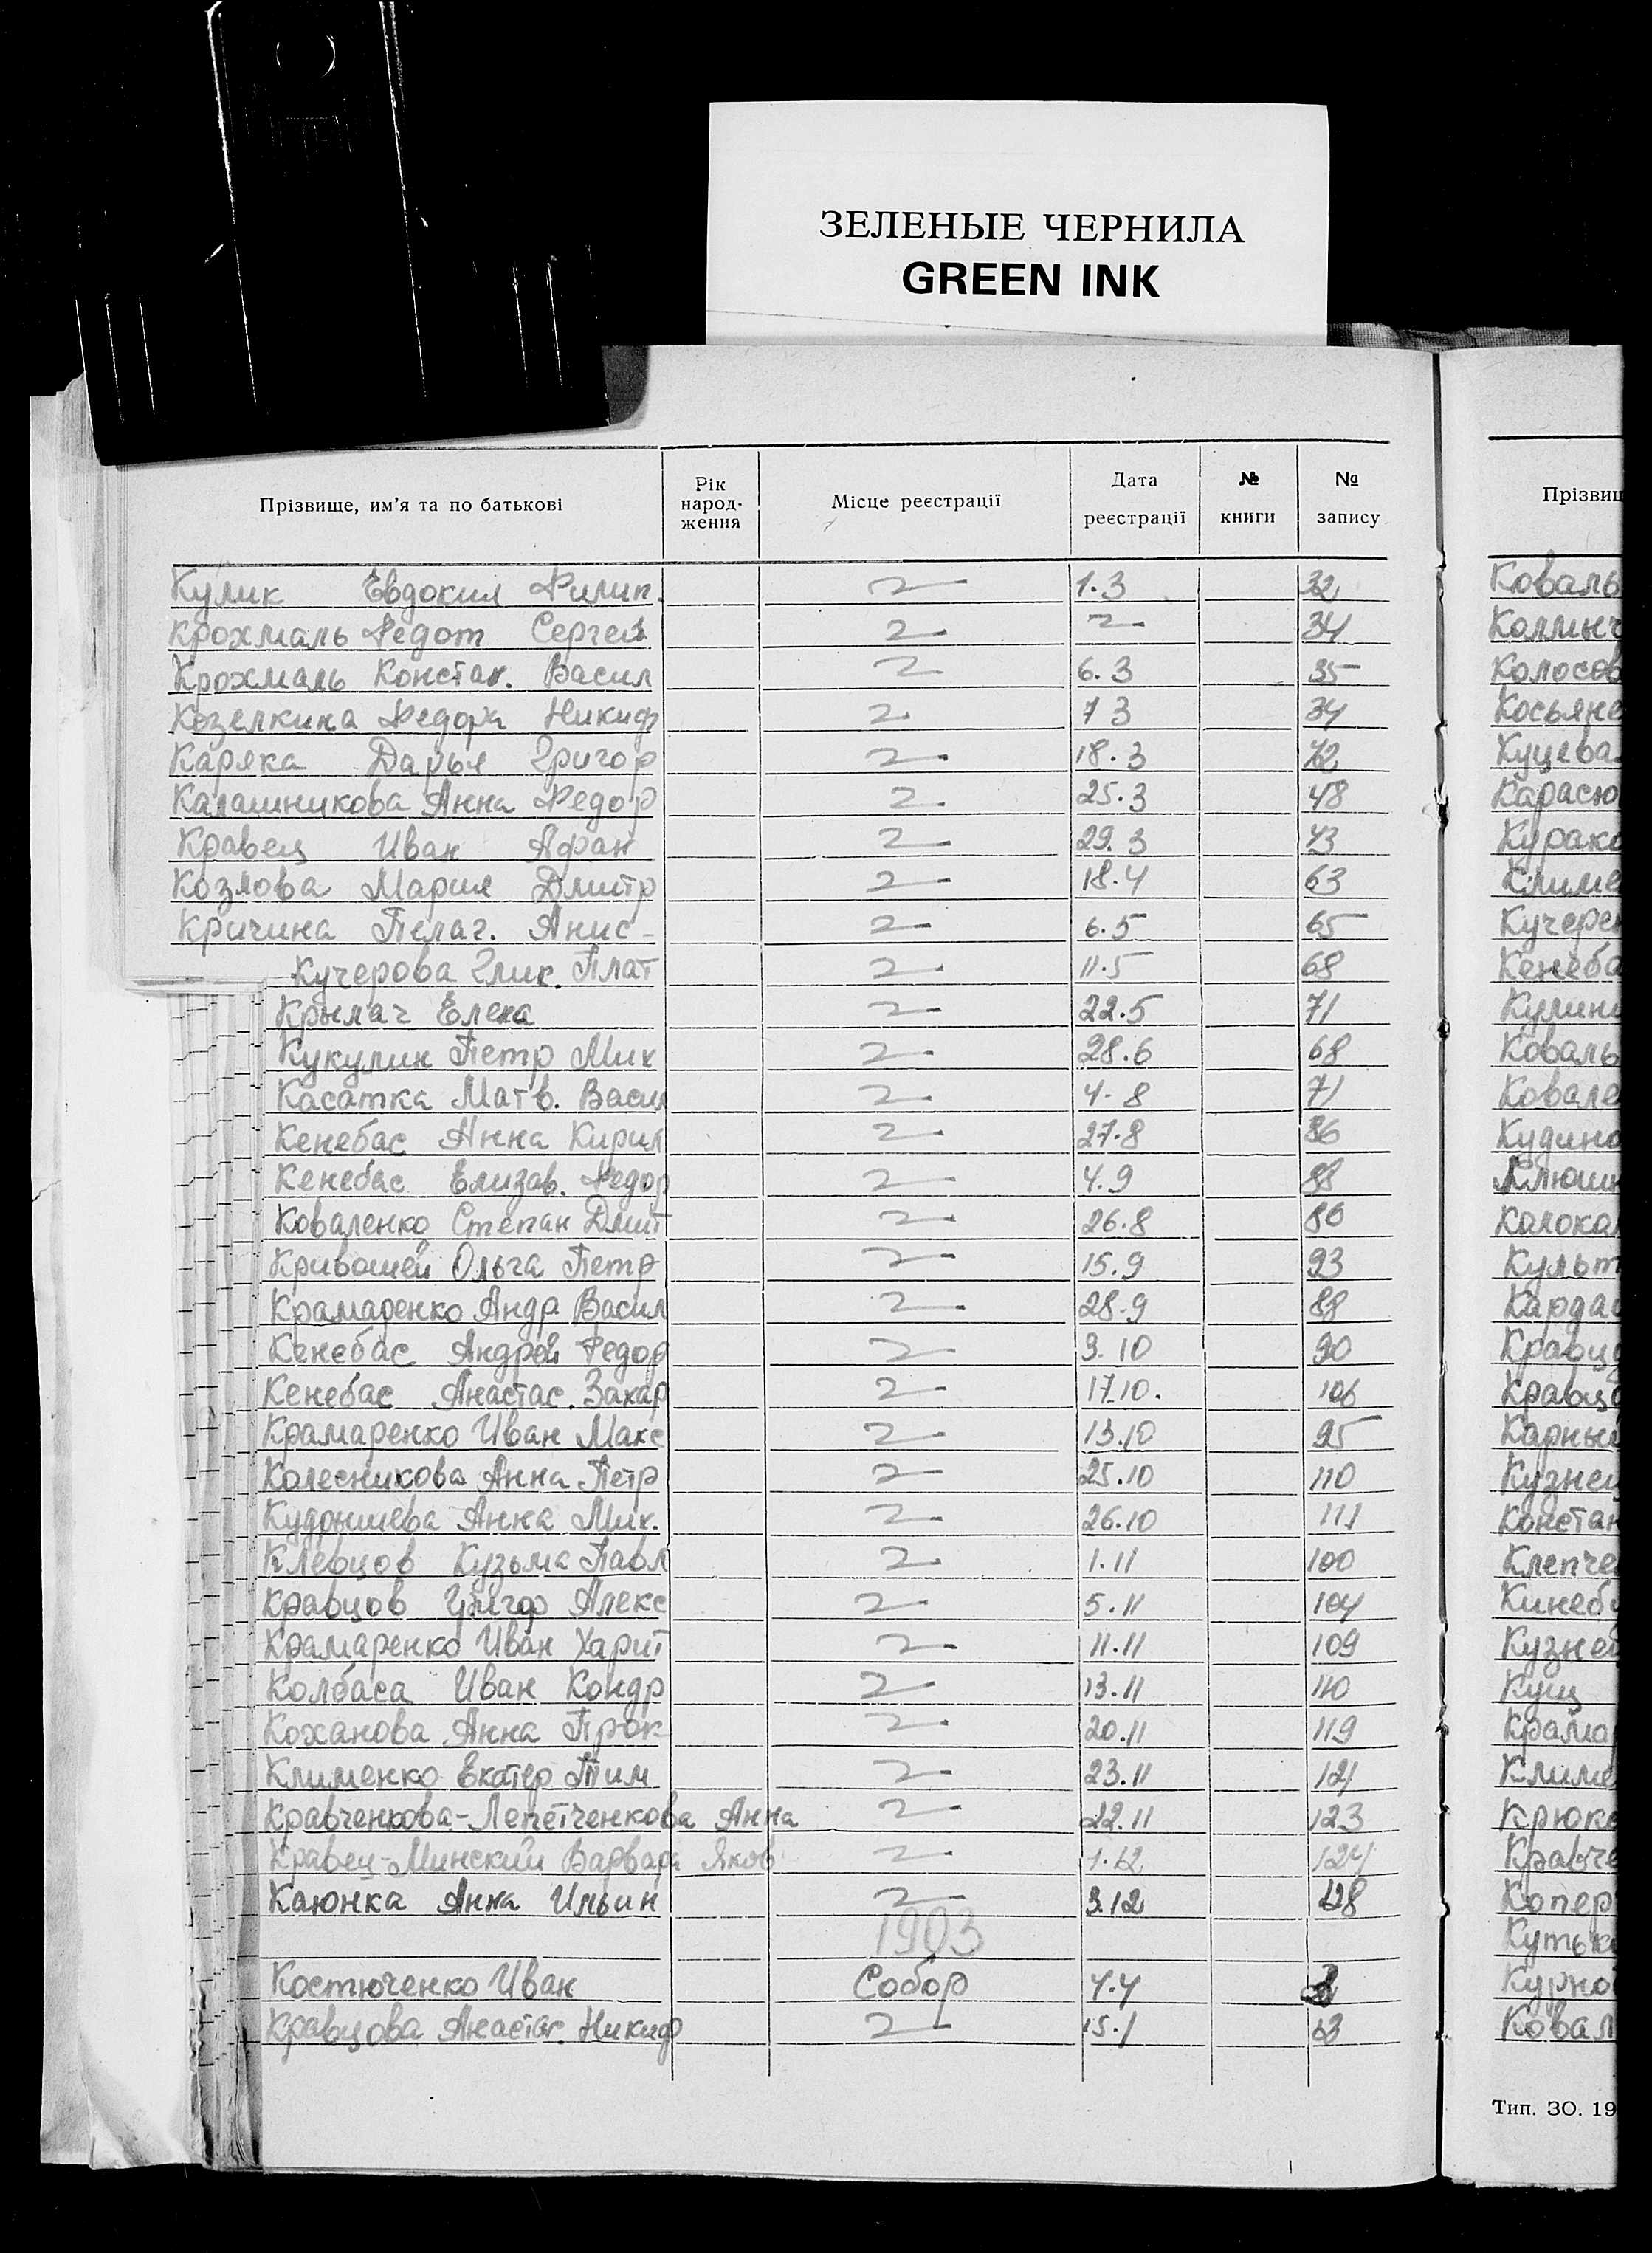 ЗЕЛЕНЫЕ ЧЕРНИЛА
GREEN INK
Прізвище, им’я та по батькові Рік народ-ження Місце реєстрації Дата реєстрації № книги № запису
Кулик Евдокия Филип. 1.3 32
Крохмаль Федот Сергей 34
Крохмаль Констан. Васил 6.3 35
Козелкина Федора Никиф 7 3 34
Каряка Дарья Григор 18.3 42
Калашникова Анна Федор 25.3 48
Кравец Иван Афан 29.3 43
Козлова Мария Дмитр 18.4 63
Кричина Пелаг. Анис- 6.5 65
Кучерова Глик. Плат 11.5 68
Крылач Елена 22.5 71
Кукулин Петр Мих 28.6 68
Касатка Матв. Васил 4-8 71
Кенебас Анна Кирил 27.8 86
Кенебас Елизав. Федор 4.9 88
Коваленко Степан Дмит 26.8 86
Кривошей Ольга Петр 15.9 93
Крамаренко Андр Васил 28.9 88
Кенебас Андрей Федор 9.10 90
Кенебас Анастас. Захар 17.10. 106
Крамаренко Иван Макс 13.10 95
Колесникова Анна Петр 25.10 110
Кудрышева Анна Мих. 26.10 111
Клевцов Кузьма Павл 1.11 100
Кравцов Григор Алекс 5.11 104
Крамаренко Иван Харит 11.11 109
Колбаса Иван Кондр 13.11 110
Коханова Анна Прок 20.11 119
Клименко Екатер Тим 23.11 121
Кравченкова-Лепетченкова Анна 22.11 123
Кравец-Минский Варвара Яков 1.12 124
Каюнка Анна Ильин 3.12 128
1903
Костюченко Иван Собор
Кравцова Анастас. Никиф 15.1 13
Прізвищ
Коваль
Колосов
Косьяне
Куцева
Карасю
Курако
Климе
Кучерен
Кенеба
Кулин
Коваль
Ковале
Кудино
Клюшн
Колокол
Культ
Кардаш
Кравцо
Кравцо
Карный
Кузнец
Констан
Клепче
Кинеб
Кузнец
Кущ
Крамар
Клим
Крюко
Кравче
Копер
Кутьк
Ковал
Тип. ЗО. 19